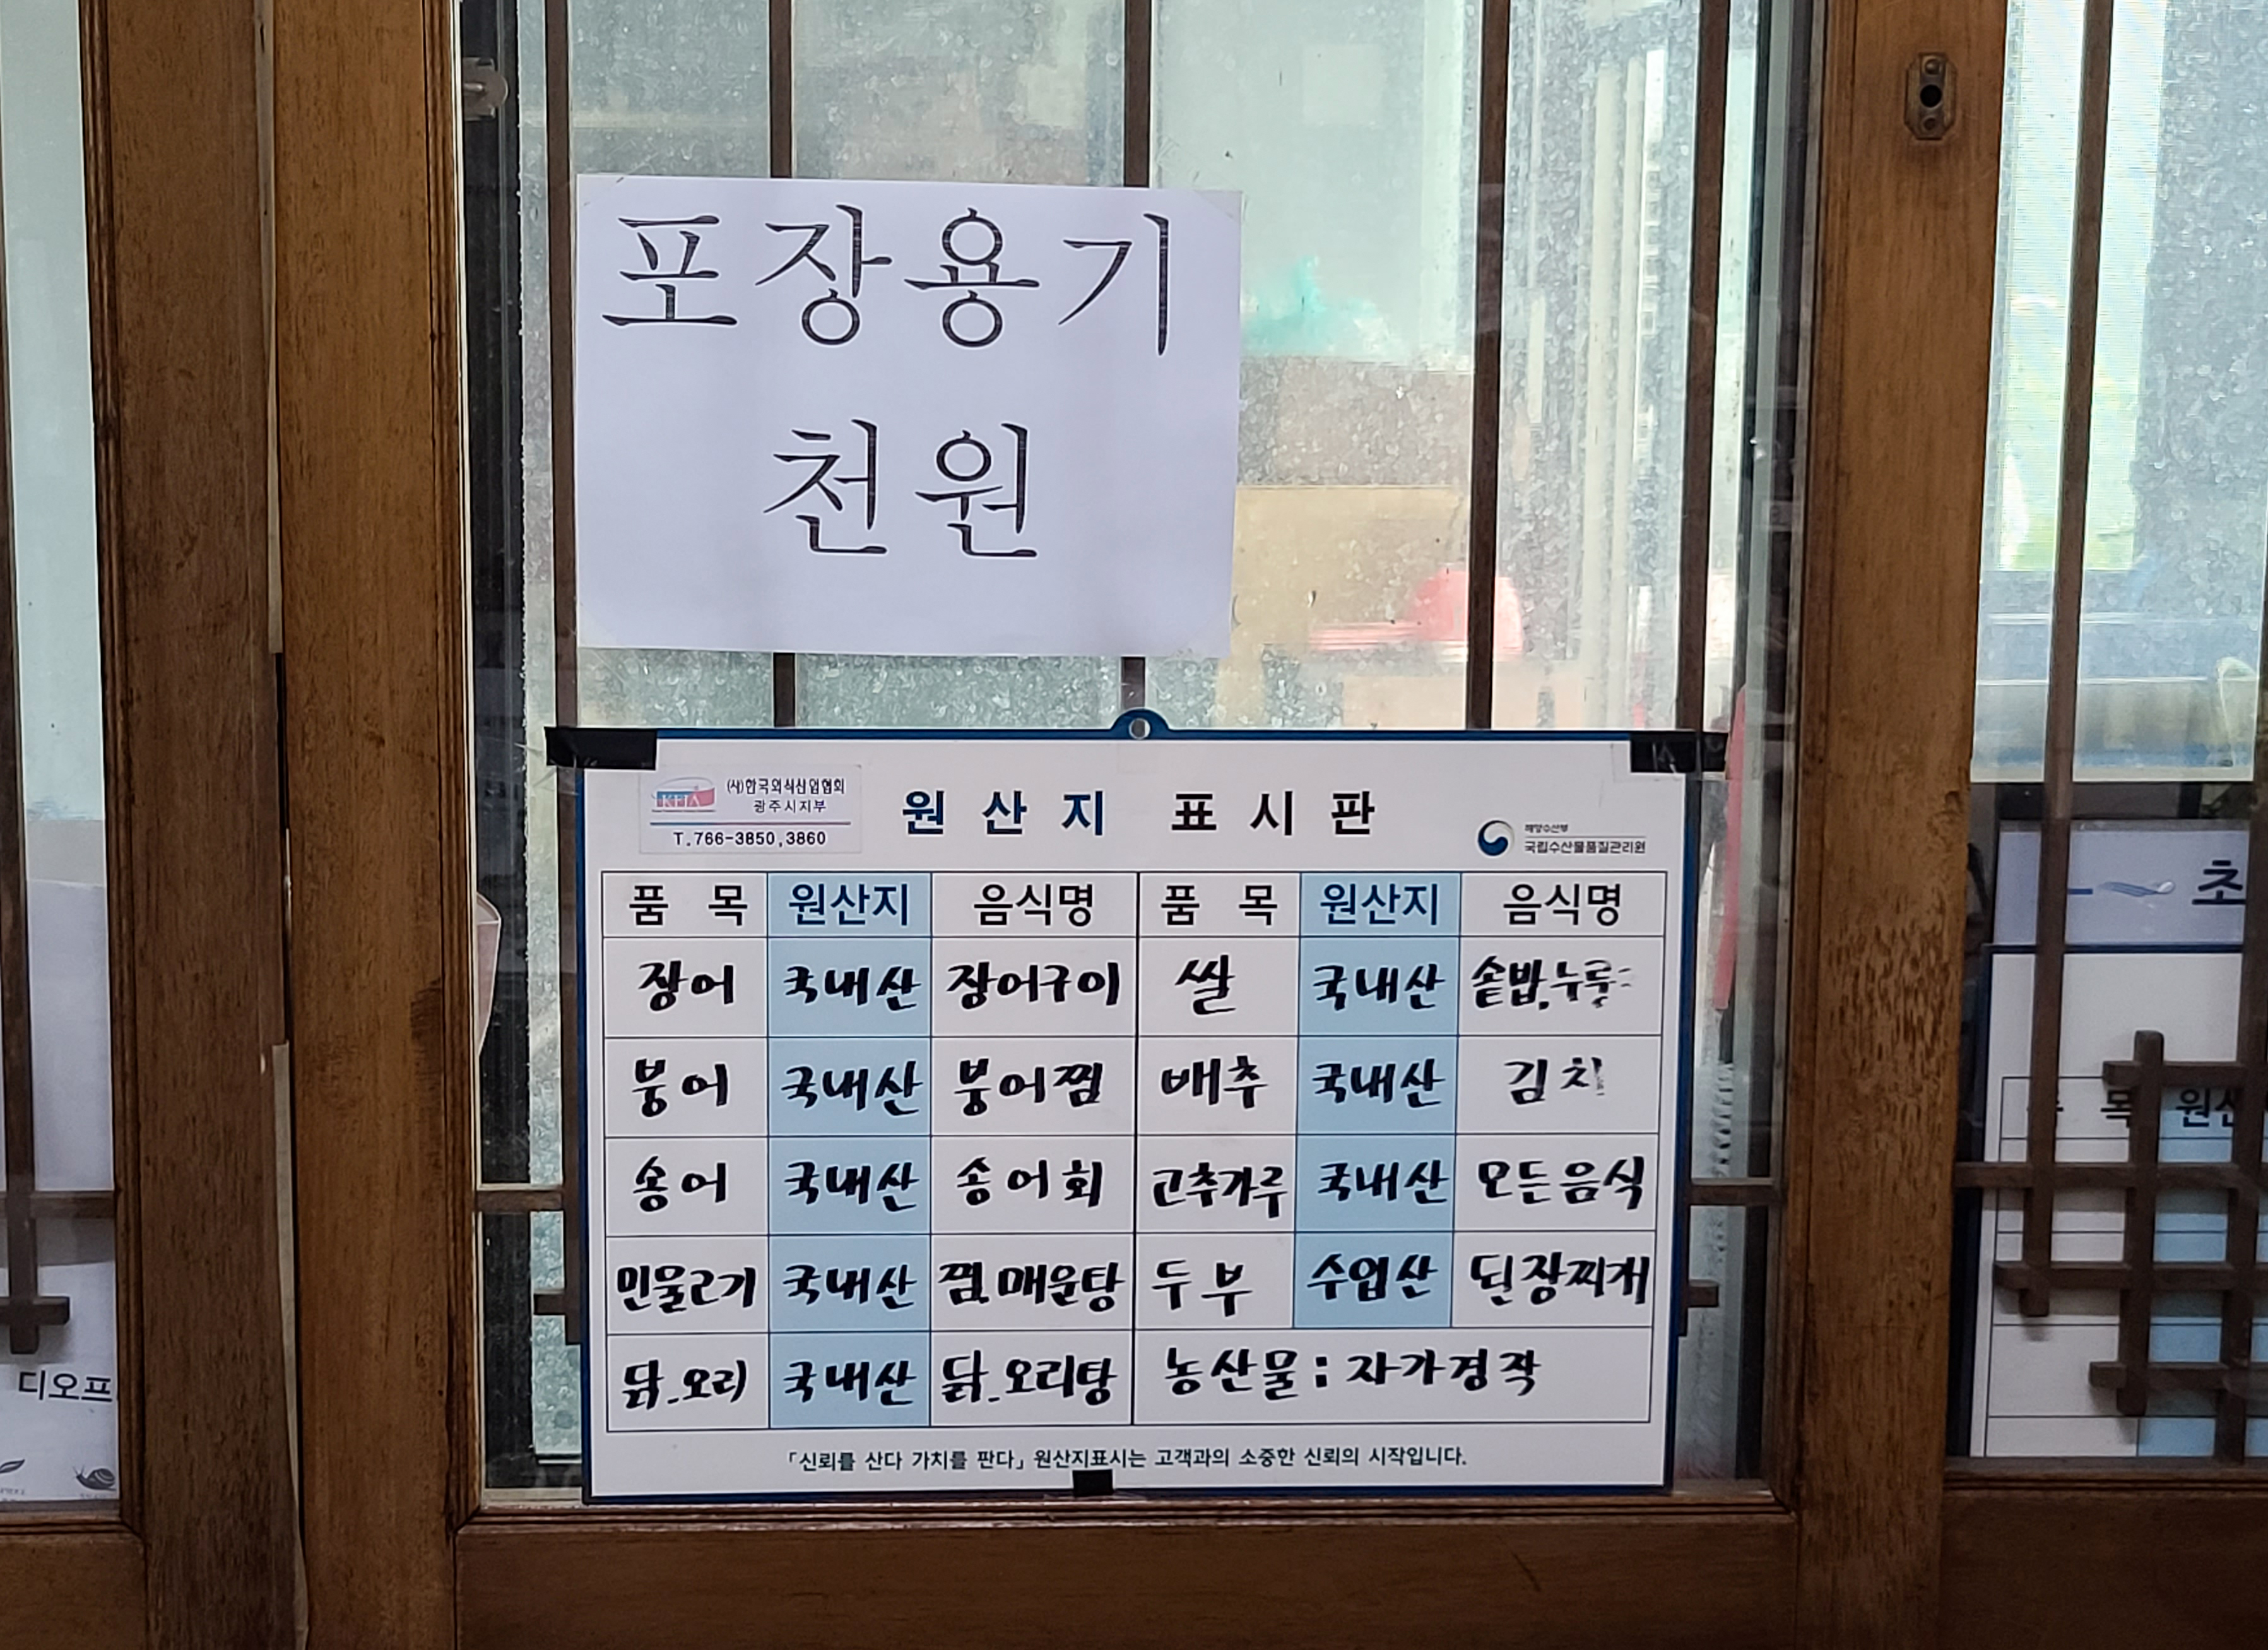 포장용기
천원
(사)한국외식산업협회
광주시지부
T.766-3850,3860
원산지 표시판
해양수산부
국립수산물품질관리원
품 목 원산지 음식명 품 목 원산지 음식명
장어 국내산 장어구이 쌀 국내산 솥밥.누룽
붕어 국내산 붕어찜 배추 국내산 김치
송어 국내산 송어회 고추가루 국내산 모든음식
민물고기 국내산 찜.매운탕 두부 수입산 된장찌개
닭.오리 국내산 닭.오리탕 농산물:자가경작
「신뢰를 산다 가치를 판다」 원산지표시는 고객과의 소중한 신뢰의 시작입니다.
디오프
초
목 원산